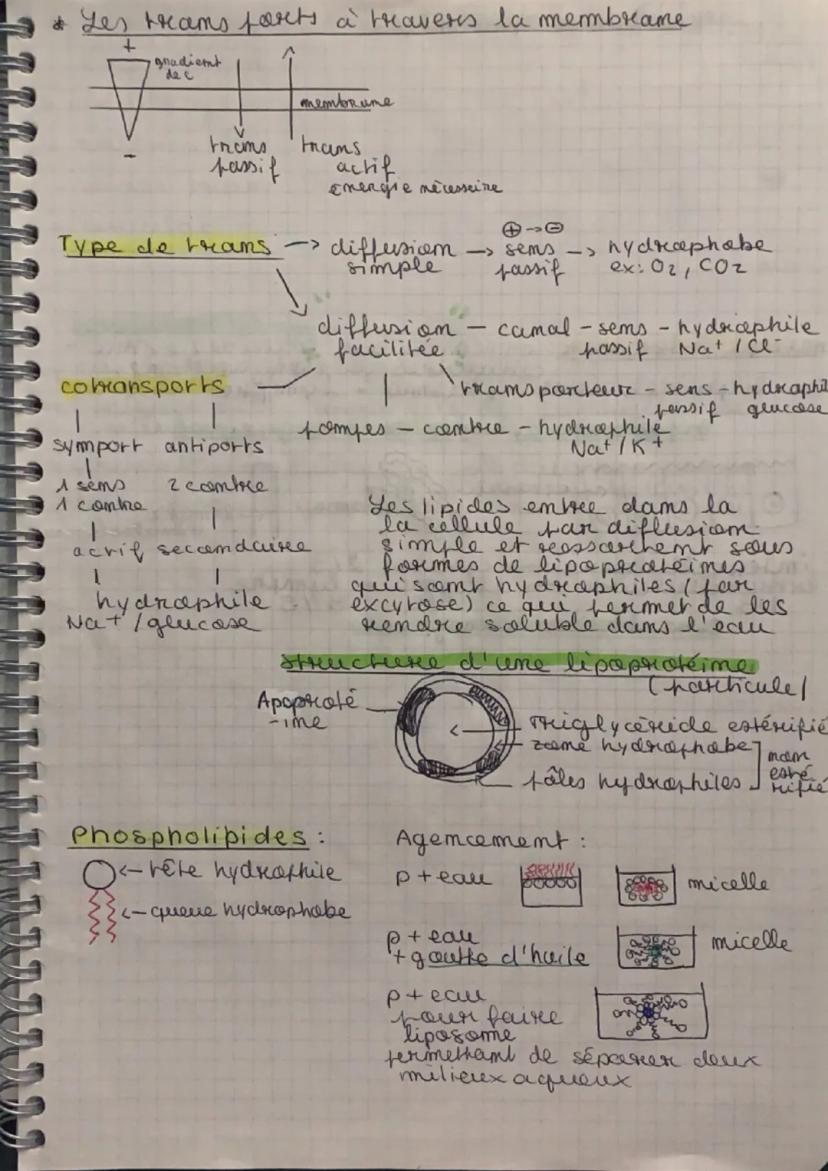 * Les transports à travers la membrane
+
gradient
de c
membrane
-
trans
passif
trans
actif
énergie nécessaire
⊕→⊖
Type de trans → diffusion → sens → hydrophobe
simple passif ex: O2, CO2
diffusion - canal - sens - hydrophile
facilitée passif Na+ / Cl-
cotransports
transporteur - sens - hydrophil
passif glucose
pompes - contre - hydrophile
Na+ / K+
symport antiports
1 sens 2 contre
1 contre
actif secondaire
hydrophile
Na+ / glucose
Les lipides entre dans la
la cellule par diffusion
simple et ressortent sous
formes de lipoprotéines
qui sont hydrophiles (par
excytose) ce qui permet de les
rendre soluble dans l'eau
structure d'une lipoprotéine
(particule)
Apoproté
-ine
Triglycéride estérifié
zone hydrophobe
pôles hydrophiles
non
esté
rifié
Phospholipides :
← tête hydrophile
← queue hydrophobe
Agencement :
p + eau
micelle
p + eau
+ goutte d'huile
micelle
p + eau
pour faire
liposome
permettant de séparer deux
milieux aqueux